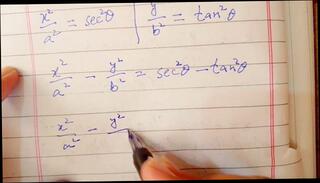 x²/a² = sec²θ | y²/b² = tan²θ
x²/a² - y²/b² = sec²θ - tan²θ
x²/a² - y²